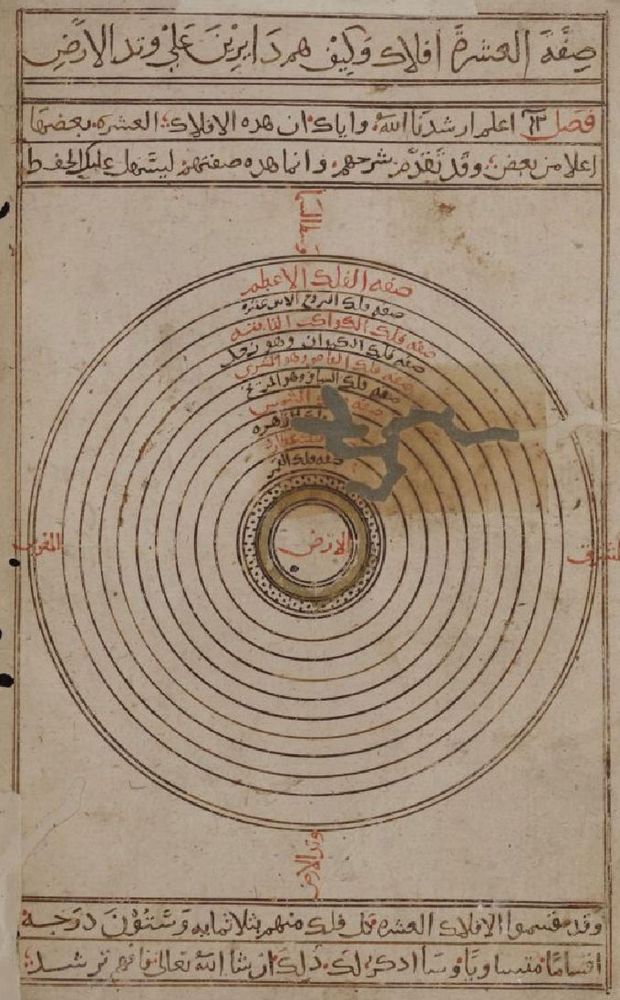 صفة العشرة افلاك وكيف هم دايرين على وتد الارض
فصل اعلم ارشدنا الله واياك ان هده الافلاك العشره بعضها
اعلا من بعض وقد تقدم شرحهم وانما هده صفتهم ليتسهل عليك الحفظ
وسط السما
صفه الفلك الاعظم
صفه فلك البروج الاثنى عشره
صفه فلك الكواكب الثابته
صفه فلك الكيوان وهو زحل
صفه فلك وهو المشتري
صفه فلك وهو المريخ
صفه الشمس
الزهره
عطارد
صفه فلك القمر
الارض
المغرب
المشرق
وتد الارض
وقد قسموا الافلاك العشره كل فلك منهم بثلاثمايه وستون درجه
اقساما متساويا وسا ادكر لك دلك ان شا الله تعالى فافهم ترشد